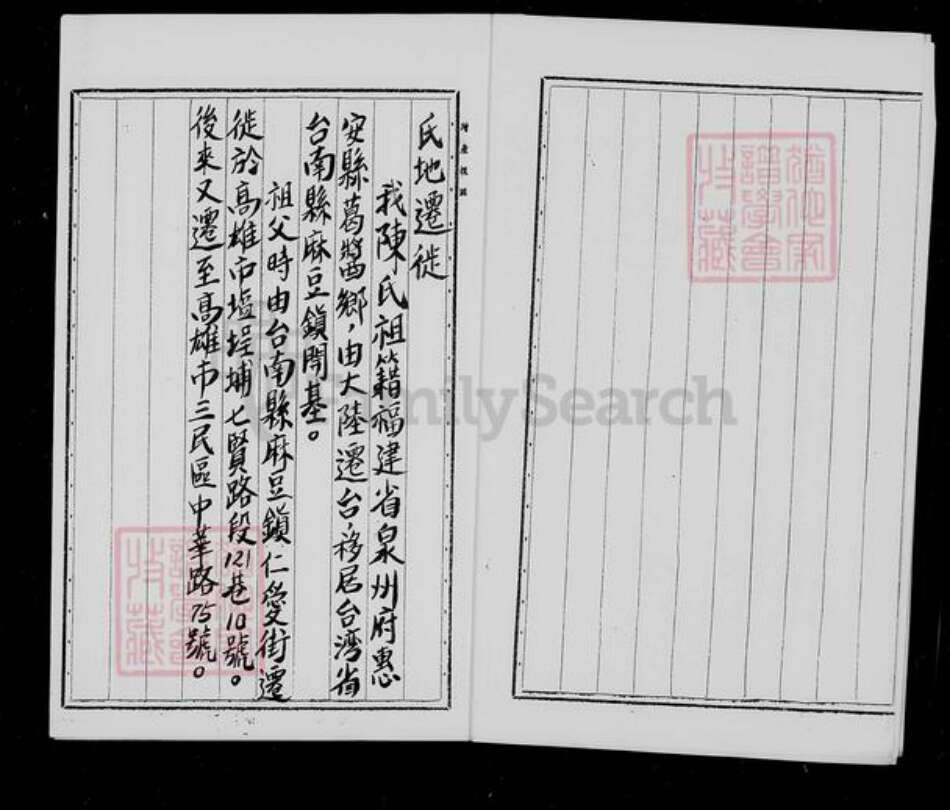 氏地遷徙
我陳氏祖籍福建省泉州府惠
安縣葛醬鄉，由大陸遷台，移居台湾省
台南縣麻豆鎮開基。
祖父時由台南縣麻豆鎮仁愛街遷
徙於高雄市塩埕埔七賢路段121巷10號。
後來又遷至高雄市三民區中華路75號。
FamilySearch